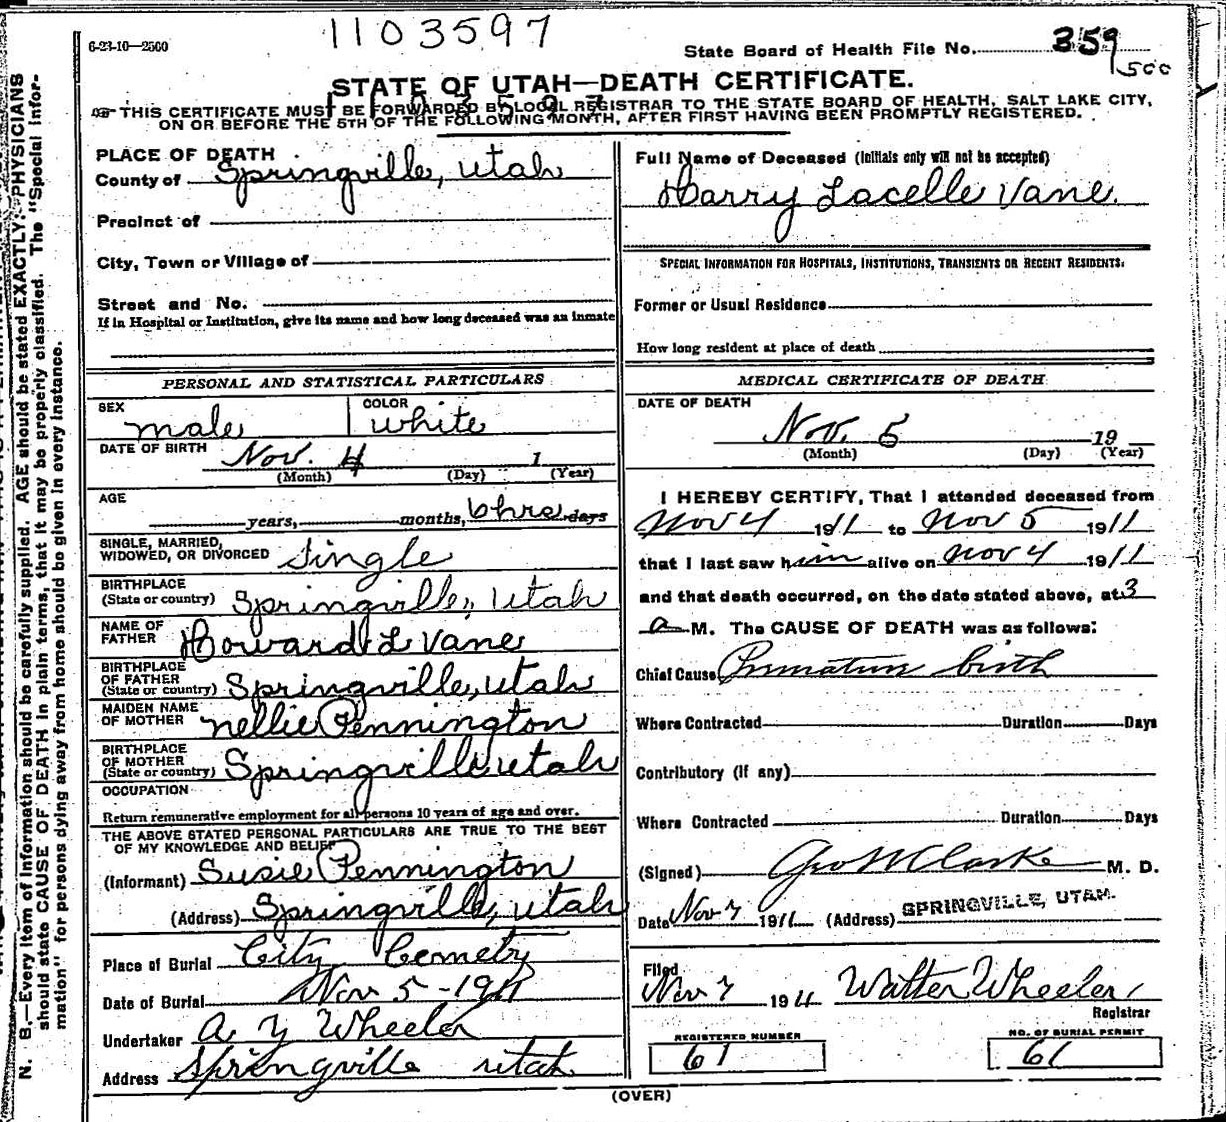 1103597
6-23-10—2500
State Board of Health File No. 359
1500
STATE OF UTAH—DEATH CERTIFICATE.
THIS CERTIFICATE MUST BE FORWARDED BY LOCAL REGISTRAR TO THE STATE BOARD OF HEALTH, SALT LAKE CITY,
ON OR BEFORE THE 5TH OF THE FOLLOWING MONTH, AFTER FIRST HAVING BEEN PROMPTLY REGISTERED.
PLACE OF DEATH
County of Springville, Utah
Precinct of
City, Town or Village of
Street and No.
If in Hospital or Institution, give its name and how long deceased was an inmate
PERSONAL AND STATISTICAL PARTICULARS
SEX
male
COLOR
white
DATE OF BIRTH Nov. 4 1
(Month) (Day) (Year)
AGE
years, months, 6 hrs. days
SINGLE, MARRIED,
WIDOWED, OR DIVORCED Single
BIRTHPLACE
(State or country) Springville, Utah
NAME OF
FATHER Howard L Vane
BIRTHPLACE
OF FATHER
(State or country) Springville, Utah
MAIDEN NAME
OF MOTHER Nellie Pennington
BIRTHPLACE
OF MOTHER
(State or country) Springville Utah
OCCUPATION
Return remunerative employment for all persons 10 years of age and over.
THE ABOVE STATED PERSONAL PARTICULARS ARE TRUE TO THE BEST
OF MY KNOWLEDGE AND BELIEF
(Informant) Susie Pennington
(Address) Springville, Utah
Place of Burial City Cemetry
Date of Burial Nov 5 - 1911
Undertaker A Y Wheeler
Address Springville Utah
Full Name of Deceased (Initials only will not be accepted)
Harry Lacelle Vane.
SPECIAL INFORMATION FOR HOSPITALS, INSTITUTIONS, TRANSIENTS OR RECENT RESIDENTS.
Former or Usual Residence
How long resident at place of death
MEDICAL CERTIFICATE OF DEATH
DATE OF DEATH
Nov. 5 19
(Month) (Day) (Year)
I HEREBY CERTIFY, That I attended deceased from
Nov 4 1911 to Nov 5 1911
that I last saw him alive on Nov 4 1911
and that death occurred, on the date stated above, at 3
a M. The CAUSE OF DEATH was as follows:
Chief Cause Premature birth
Where Contracted Duration Days
Contributory (if any)
Where Contracted Duration Days
(Signed) Geo W Clarke M. D.
Date Nov 7 1911 (Address) SPRINGVILLE, UTAH.
Filed
Nov 7 1911 Walter Wheeler
Registrar
REGISTERED NUMBER
61
NO. OF BURIAL PERMIT
61
(OVER)
N. B.—Every item of information should be carefully supplied. AGE should be stated EXACTLY. PHYSICIANS
should state CAUSE OF DEATH in plain terms, that it may be properly classified. The "Special Infor-
mation" for persons dying away from home should be given in every instance.